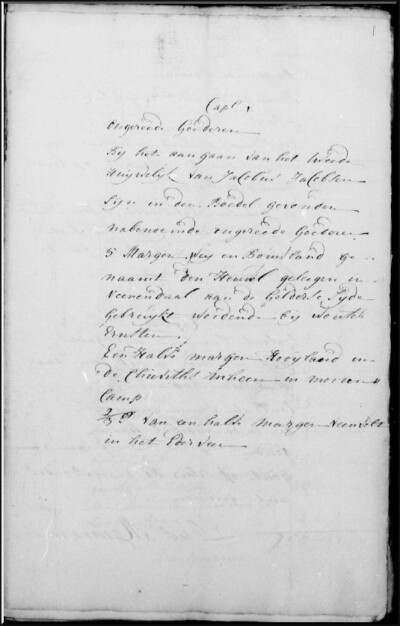 1
Capl 1
ongereede Goederen
Bij het aangaan van het tweede
Huywelijk van Jacobus Jacobsen
Zijn in den Boedel gevonden
nabenoemde ongereede Goederen
5 Margen Wey en Bouwland ge-
naamt den Heuvel geleegen in
Veenendaal aan de Geldersse Zyde
Gebruykt wordende bij Wouter
Een Halve margen Hooyland in
de
Camp
van een halve margen
in het